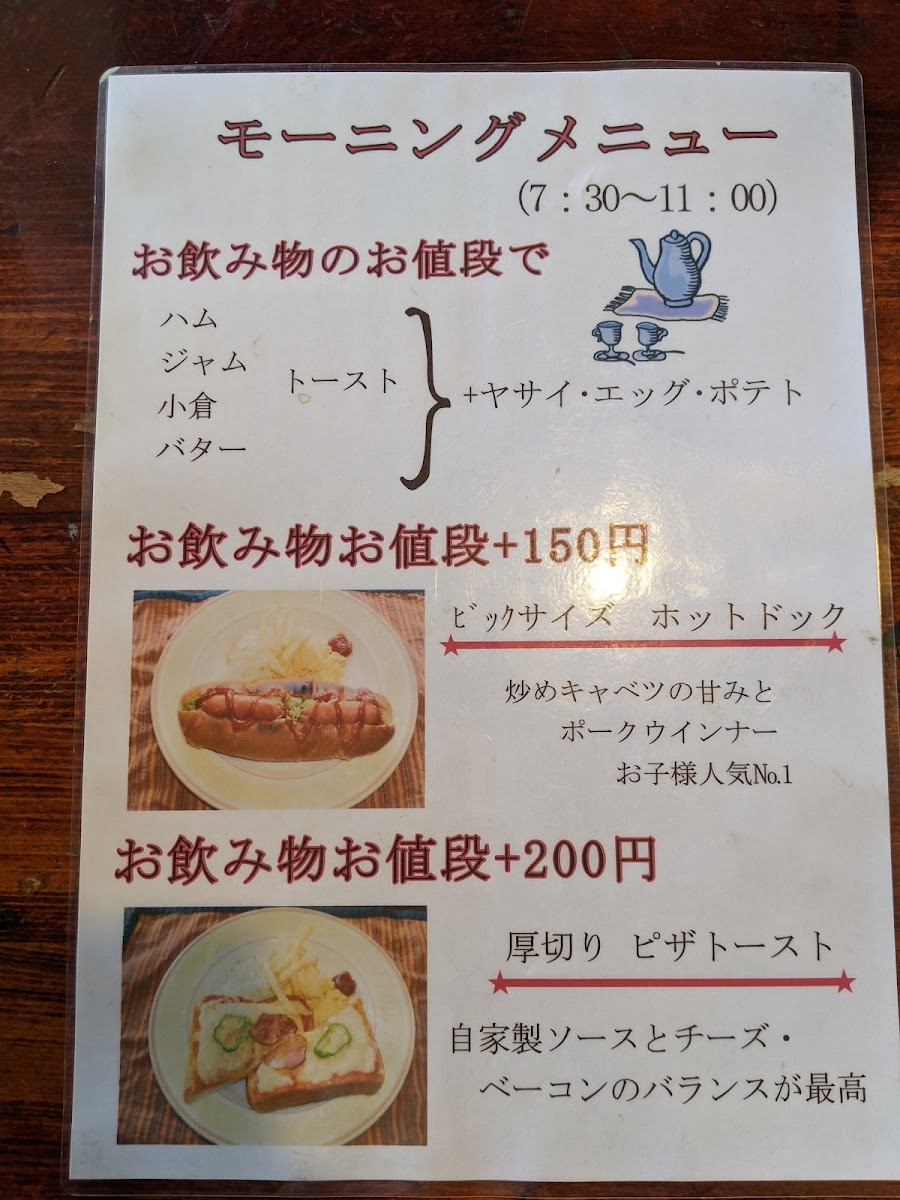 モーニングメニュー
(7：30～11：00)
お飲み物のお値段で
ハム
ジャム
小倉
バター
トースト
+ヤサイ・エッグ・ポテト
お飲み物お値段+150円
ﾋﾞｯｸサイズ　ホットドック
炒めキャベツの甘みと
ポークウインナー
お子様人気№1
お飲み物お値段+200円
厚切り ピザトースト
自家製ソースとチーズ・
ベーコンのバランスが最高